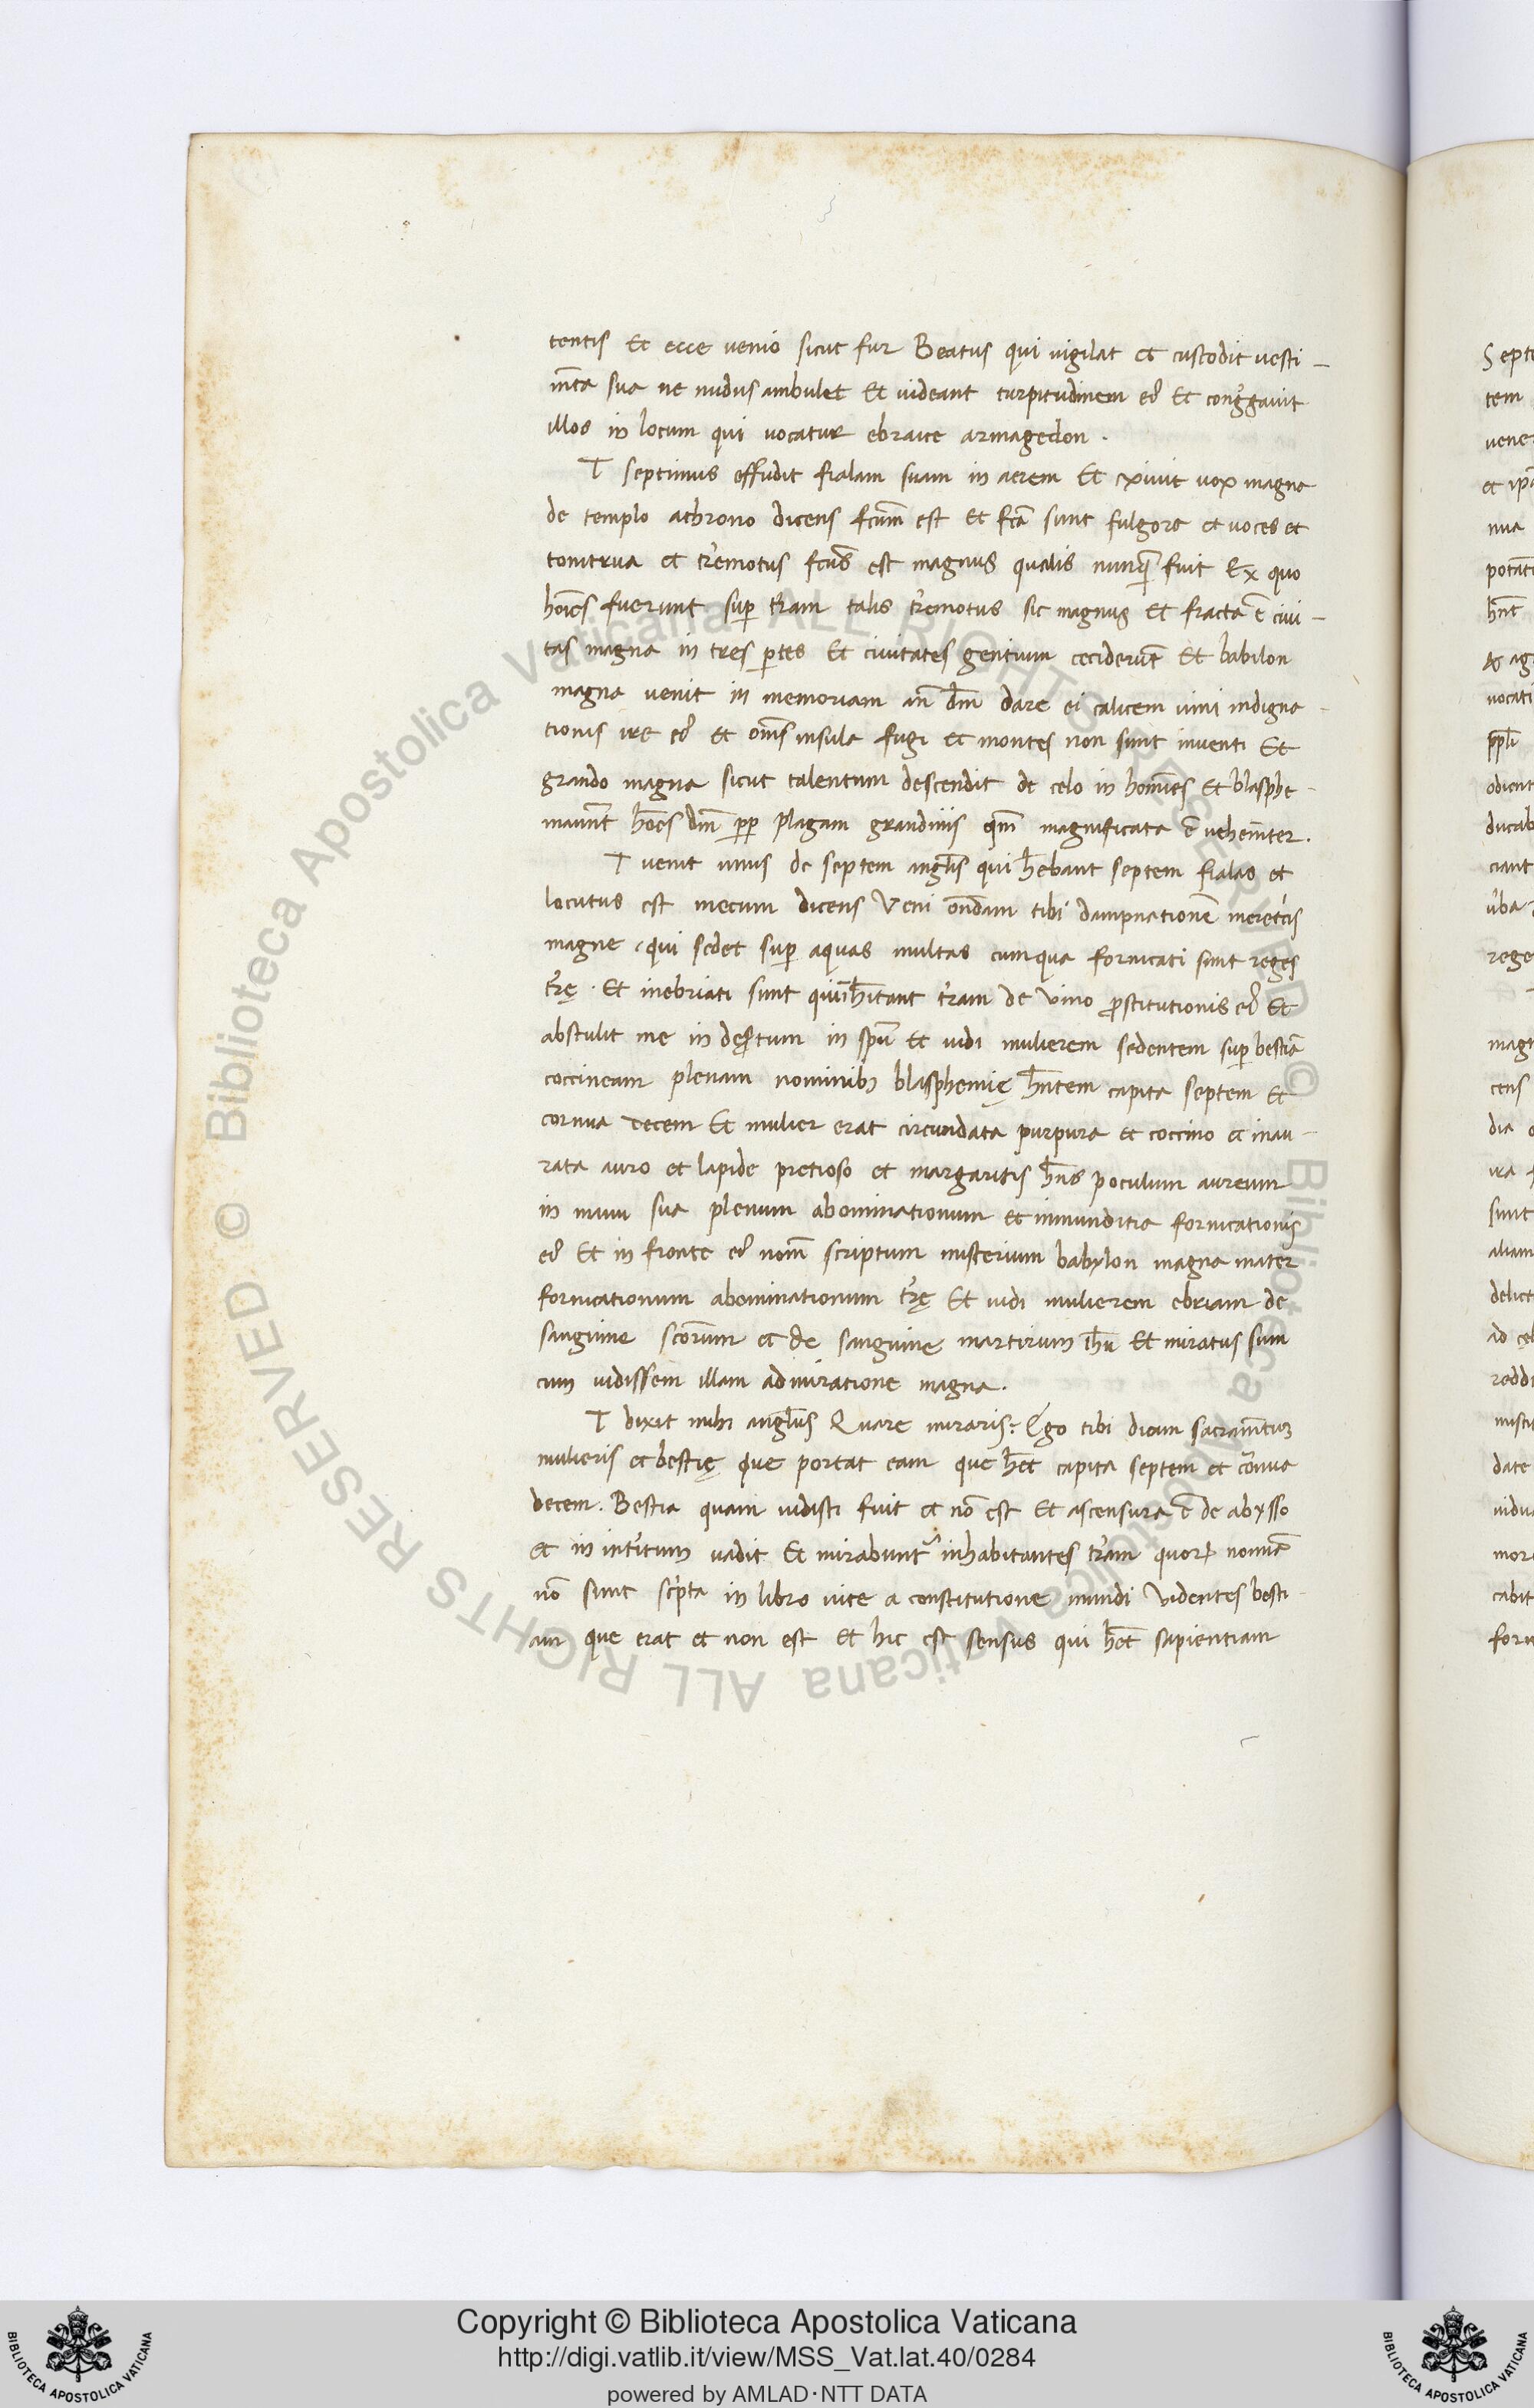 tentis Et ecce uenio sicut fur Beatus qui uigilat et custodit uesti-
m̅ta sua ne nudus ambulet Et uideant turpitudinem eꝰ Et congͣgauit
illos in locum qui uocatur ebraice armagedon .
T septimus effudit fialam suam in aerem Et exiuit uox magna
de templo athrono dicens fc̅um est et fc̅a sunt fulgora et uoces et
tonitrua et tr̓emotus fc̅us est magnus qualis nunq̅ fuit Ex quo
ho̅ies fuerunt suꝑ tr̅am talis tr̓emotus sic magnus et fracta ē ciui-
tas magna in tres ꝑtes Et ciuitates gentium cecider̅t Et babilon
magna uenit in memoriam an̅ dm̅ dare ei calicem uini indigna-
tionis ire eꝰ et om̅s insula fugi et montes non sunt inuenti Et
grando magna sicut talentum descendit de celo in homi̅es Et blasphe-
mauer̅t ho̅ies dm̅ ꝓꝑ plagam grandinis qm̅ magnificata ē uehem̅ter.
T uenit unus de septem angl̅is qui h̅ebant septem fialas et
locutus est mecum dicens Veni on̅dam tibi dampnatione̅ meret͛cis
magne qui sedet suꝑ aquas multas cumqua fornicati sunt reges
tr̓ę . Et inebriati sunt qui in̅h̅itant tr̓am de uino ꝓstitutionis eꝰ Et
abstulit me in deꝑtum in spu̅ et uidi mulierem sedentem suꝑ bestia̅
coccineam plenam nominibꝫ blasphemię h̅ntem capita septem Et
cornua decem Et mulier erat circundata purpura et coccino et inau-
rata auro et lapide pretioso et margaritis h̅ns poculum aureum
in manu sua plenum abominationum et inmunditia fornicationis
eꝰ Et in fronte eꝰ nom̅ scriptum misterium babylon magna mater
fornicationum abominationum tr̓ę Et uidi mulierem ebriam de
sanguine sc̅orum et de sanguine martirum ih̅u Et miratus sum
cum uidissem illam admiratione magna .
T dixit mihi angl̅us Quare miraris? Ego tibi dicam sacram̅tuꝫ
mulieris et bestię que portat eam que h̅et capita septem et cornua
decem . Bestia quam uidisti fuit et no̅ est Et ascensura ē de abysso
et in int̓itum uadit Et mirabunt᷑ inhabitantes tr̓am quoꝝ nomi̅a
no̅ sunt sc̓pta in libro uite a constitutione mundi Videntes besti-
am que erat et non est Et hic est sensus qui h̅et sapientiam
Copyright © Biblioteca Apostolica Vaticana
http://digi.vatlib.it/view/MSS_Vat.lat.40/0284
powered by AMLAD·NTT DATA